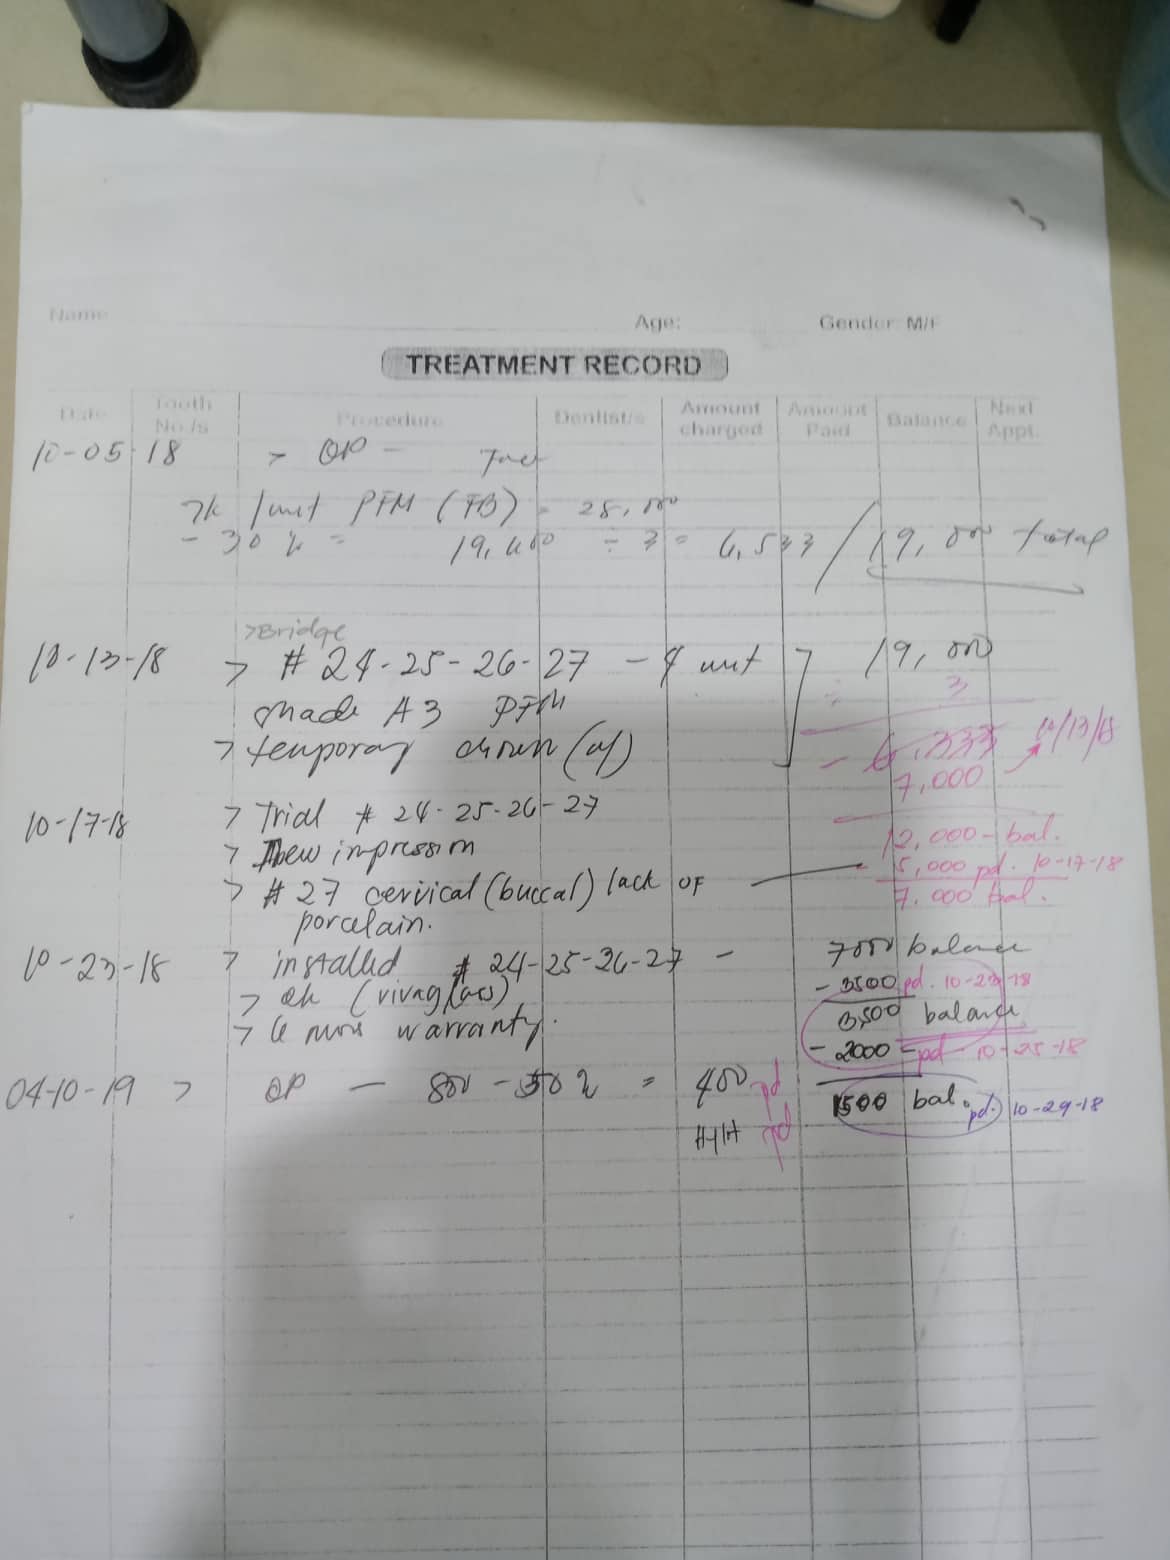 Name
Age:
Gender: M/F
TREATMENT RECORD
Date
Tooth No./s
Procedure
Dentist/s
Amount charged
Amount Paid
Balance
Next Appt.
10-05-18 > OP -
7k /unit PFM (FB) = 28,000
- 30% = 19,600 ÷ 3 = 6,533 / 19,000 total
>Bridge
10-13-18 > # 24-25-26-27 - 4 unit 19,000
shade A3 PFM ÷ 3
> temporary crown (of) - 6,333 10/13/18
7,000
10-17-18 > Trial # 24-25-26-27
12,000 - bal.
> New impression
5,000 pd. 10-17-18
> # 27 cervical (buccal) lack of
7,000 bal.
porcelain.
10-23-18 > installed # 24-25-26-27 - 7000 balance
- 3500 pd. 10-23-18
> (vivaglass)
3,500 balance
> 6 mos warranty.
- 2000 - pd - 10-25-18
04-10-19 > OP - 800 - 50% = 400 pd
1500 bal. pd. 10-29-18
pd